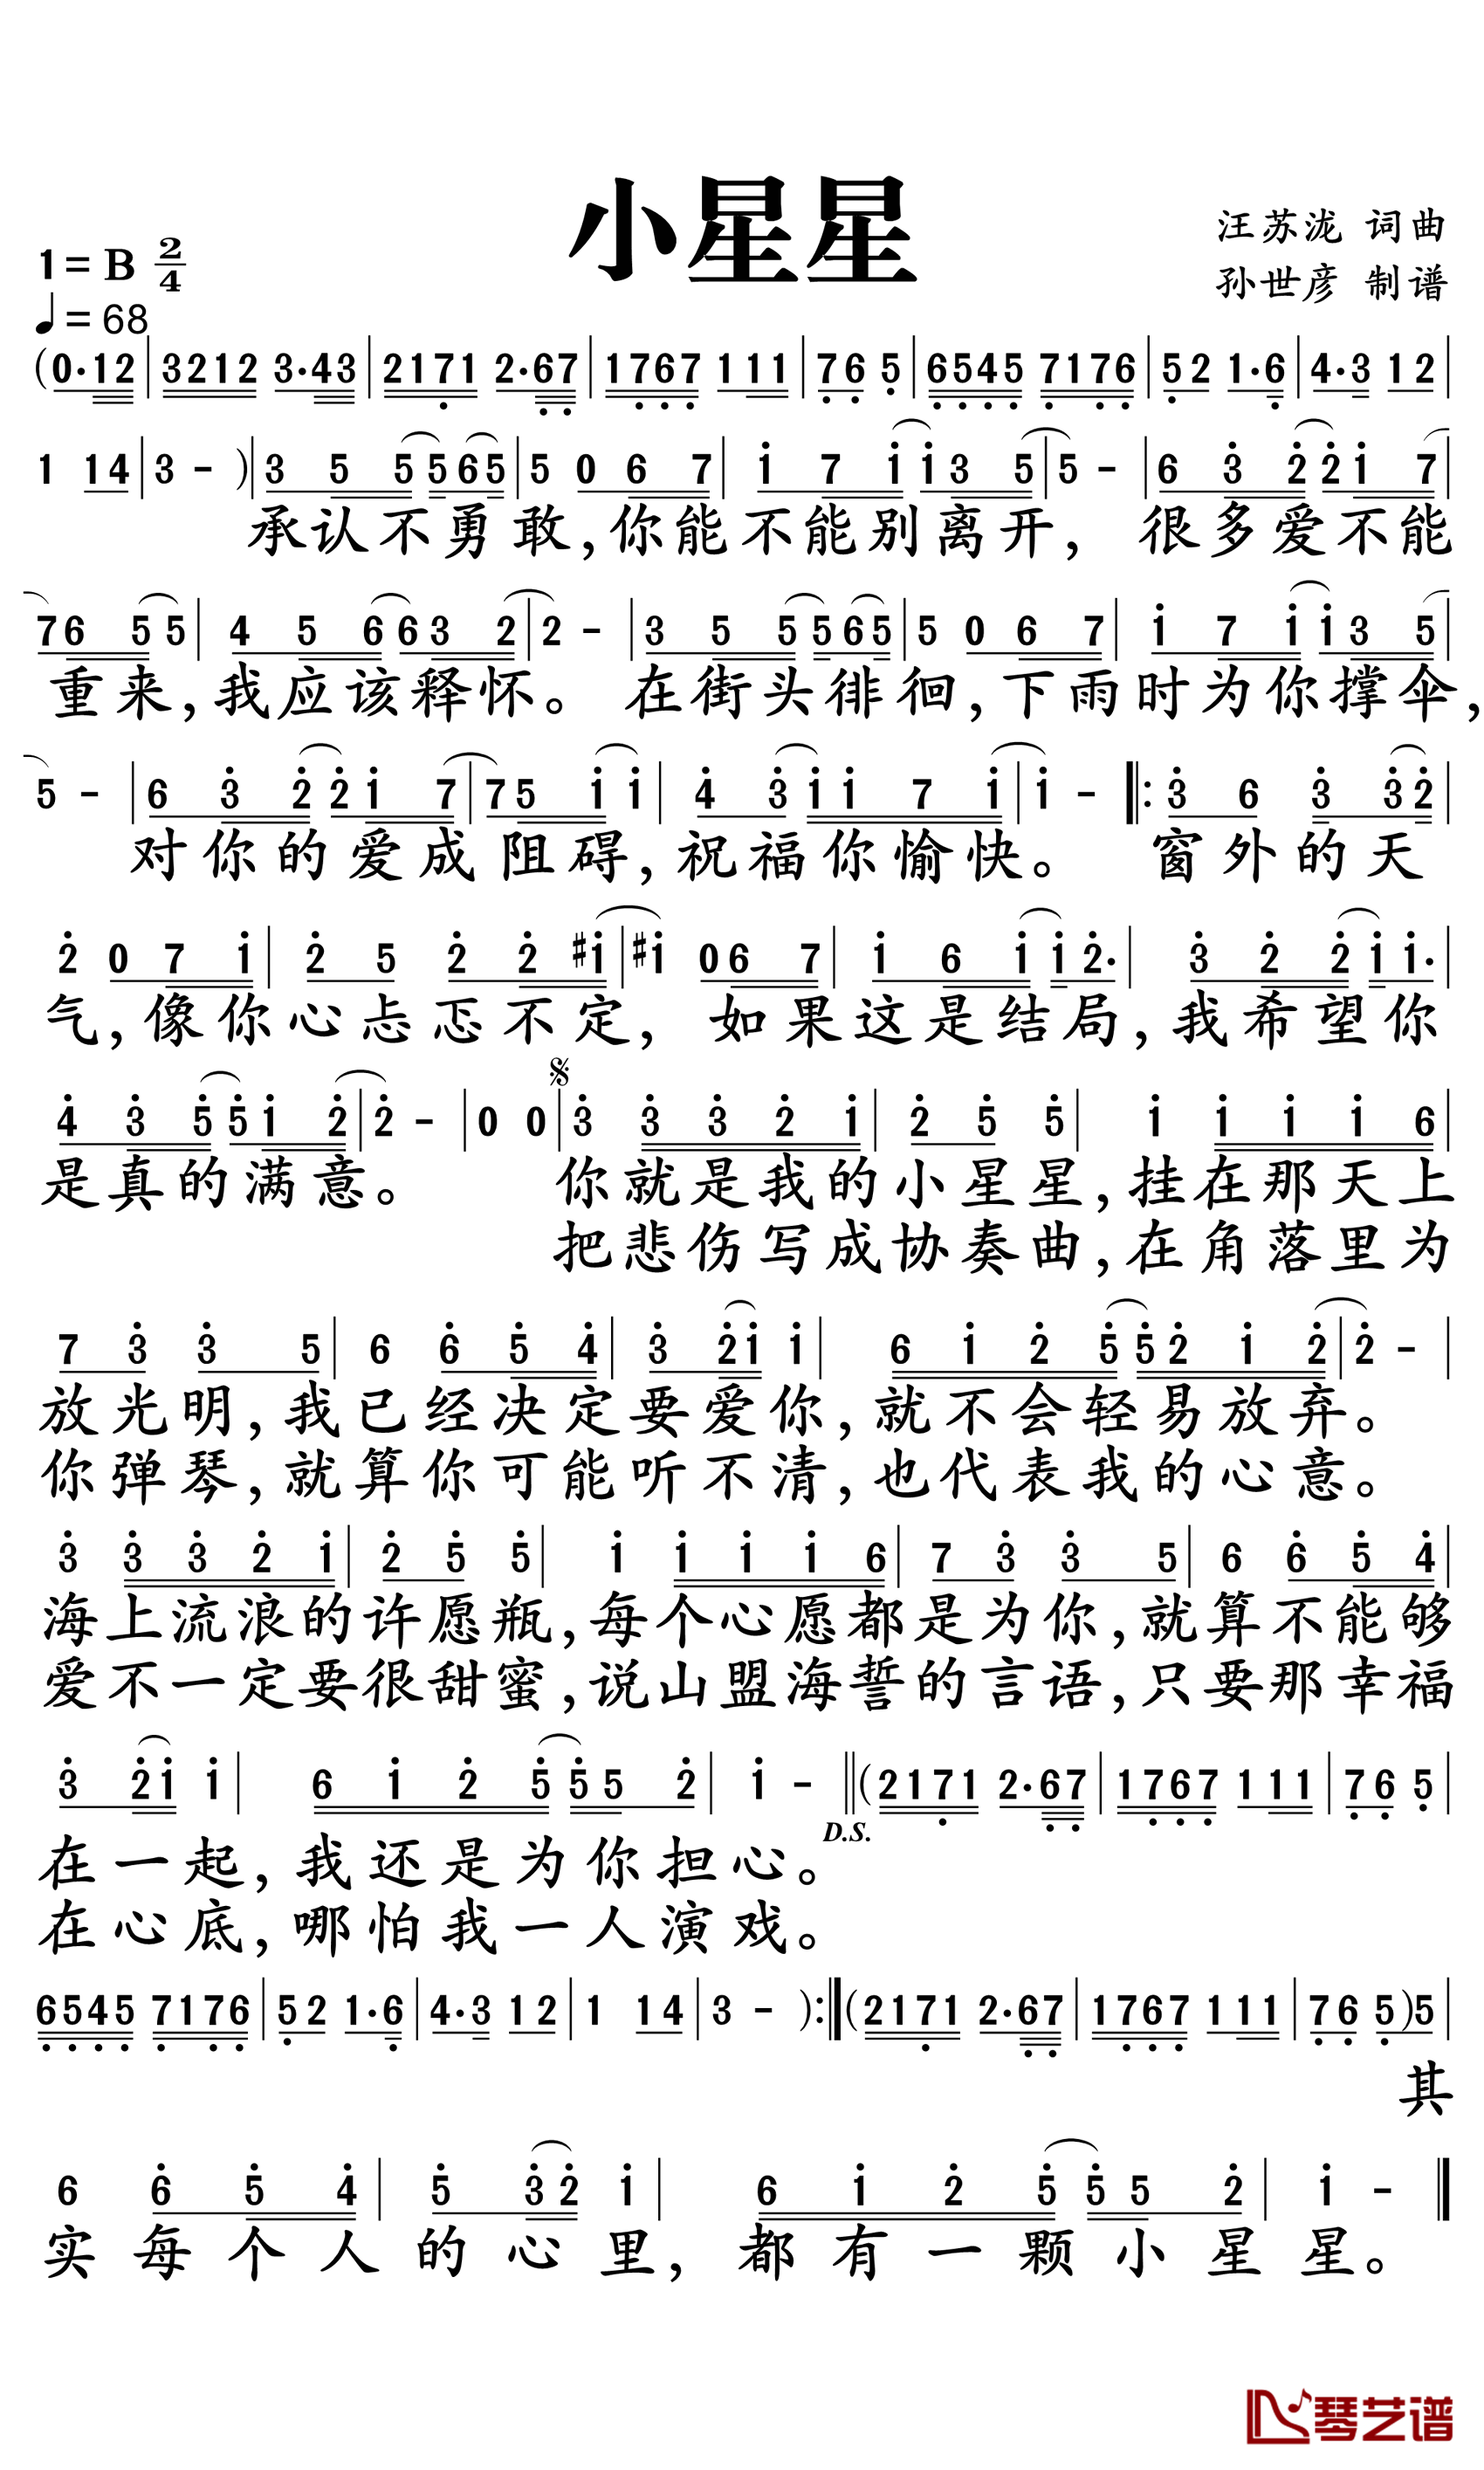 小星星
汪苏泷 词曲
孙世彦 制谱
1= B 2/4
♩= 68
(0·12|3212 3·43|2171 2·67|1767 111|76 5|6545 7176|52 1·6|4·3 12|
1 14|3 - )|3 5 5565|5 0 6 7|1 7 1135|5 - |6 3 2217|
承认不勇敢,你能不能别离开, 很多爱不能
7655|4 5 6632|2 - |3 5 5565|5 0 6 7|1 7 1135|
重来,我应该释怀。在街头徘徊,下雨时为你撑伞,
5 - |6 3 2217|7511|4 31171|1 - |:3 6 3 32|
对你的爱成阻碍,祝福你愉快。 窗外的天
2 0 7 1|2 5 2 2 #1|#1 0 6 7|1 6 112·|3 2 211·|
气,像你心忐忑不定, 如果这是结局,我希望你
4 3 5512|2 - |0 0|3 3 3 2 1|2 5 5|1 1 1 1 6|
是真的满意。 你就是我的小星星,挂在那天上
把悲伤写成协奏曲,在角落里为
7 3 3 5|6 6 5 4|3 21 1|6 1 2 5 5212|2 - |
放光明,我已经决定要爱你,就不会轻易放弃。
你弹琴,就算你可能听不清,也代表我的心意。
3 3 3 2 1|2 5 5|1 1 1 1 6|7 3 3 5|6 6 5 4|
海上流浪的许愿瓶,每个心愿都是为你,就算不能够
爱不一定要很甜蜜,说山盟海誓的言语,只要那幸福
3 21 1|6 1 2 5 55 2|1 - ||(2171 2·67|1767 111|76 5|
D.S.
在一起,我还是为你担心。
在心底,哪怕我一人演戏。
6545 7176|52 1·6|4·3 12|1 14|3 - ):|(2171 2·67|1767 111|76 5)5|
其
6 6 5 4|5 32 1|6 1 2 5 55 2|1 - |
实每个人的心里,都有一颗小星星。
琴艺谱